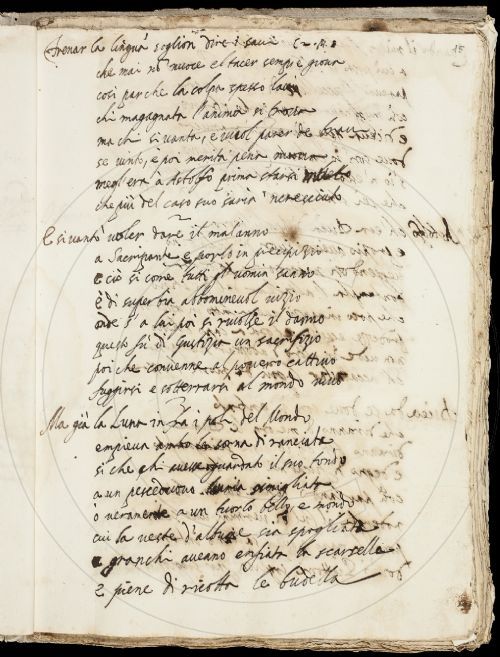 frenar la lingua soglion dire i savi C. 2. 15
che mai nō nuoce e'l tacer sempre giova
così par che la colpa spesso lavi
chi magagnata l'anima si trova
ma chi si vanta, e vuol parer de bravi
se vinto, e poi merita pena nuova
megl'era a Astolfo prima starsi
che più del caso suo saria
E si vantò voler dare il malanno
a Sacripante e porlo in precipizio
e ciò si come tutti gl'uomin sanno
è di superbia abbominevol vizio
onde s'a lui poi si rivolse il danno
questo fù di giustizia un sacrifizio
poi che convenne al povero cattivo
fuggirsi e sotterrarsi al mondo vivo
Ma già la Luna in tra i poli del Mondo
empieva di ranciata
si che chi avesse guardato il suo tondo
a un pesceduovo l'avria simigliata
ò veramente a un tuorlo bello e mondo
cui la veste d'albume sia spogliata
e granchi aveano enfiata la scarsella
e piene di ricotta le budella